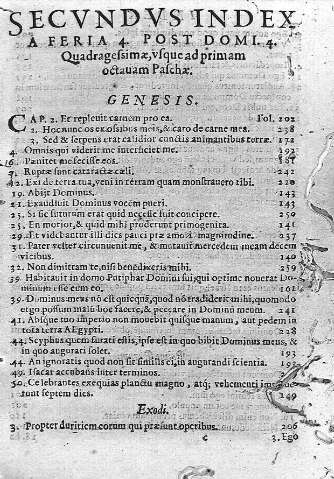 SECVNDVS INDEX
A FERIA 4. POST DOMI. 4.
Quadragessimæ, vsque ad primam
octauam Paschæ.
GENESIS.
CAP. 2. Et repleuit carnem pro ea. Fol. 202
2. Hoc nunc os ex ossibus meis, & caro de carne mea. 238
3. Sed & serpens erat calidior cunctis animantibus terræ 172
4. Omnis qui viderit me interficiet me. 193
6. Pænitet me fecisse eos. 181
7. Ruptæ sunt cataractæ cæli. 242
12. Exi de terra tua, veni in terram quam monstrauero tibi. 228
19. Abijt Dominus. 143
21. Exaudiuit Dominus vocem pueri. 143
25. Si sic futurum erat quid necesse fuit concipere. 250
25. En morior, & quid mihi proderunt primogenita. 146
29. Et videbantur illi dies pauci præ amoris magnitudine. 237
31. Pater vester circunuenit me, & mutauit mercedem meam decem
vicibus. 140
32. Non dimittam te, nisi benedixeris mihi. 259
39. Habitauit in domo Putiphar Domini sui qui optime nouerat Do-
minum esse cum eo. 161
39. Dominus meus nō est quicquā, quod nō tradiderit mihi, quomodo
ergo possum malū hoc facere, & peccare in Dominū meum. 241
41. Absque tuo imperio non mouebit quisque manum, aut pedem in
tota terra AEgypti. 228
44. Scyphus quem furati estis, ipse est in quo bibit Dominus meus, &
in quo augurari solet. 193
44. An ignoratis quod non sit similis ei, in augurandi scientia. 193
49. Isacar accubans inter terminos. 149
50. Celebrantes exequias planctu magno, atq; vehementi imple-
runt septem dies. 149
Exodi.
3. Propter duritiem eorum qui præsunt operibus. 206
c 3. Ego